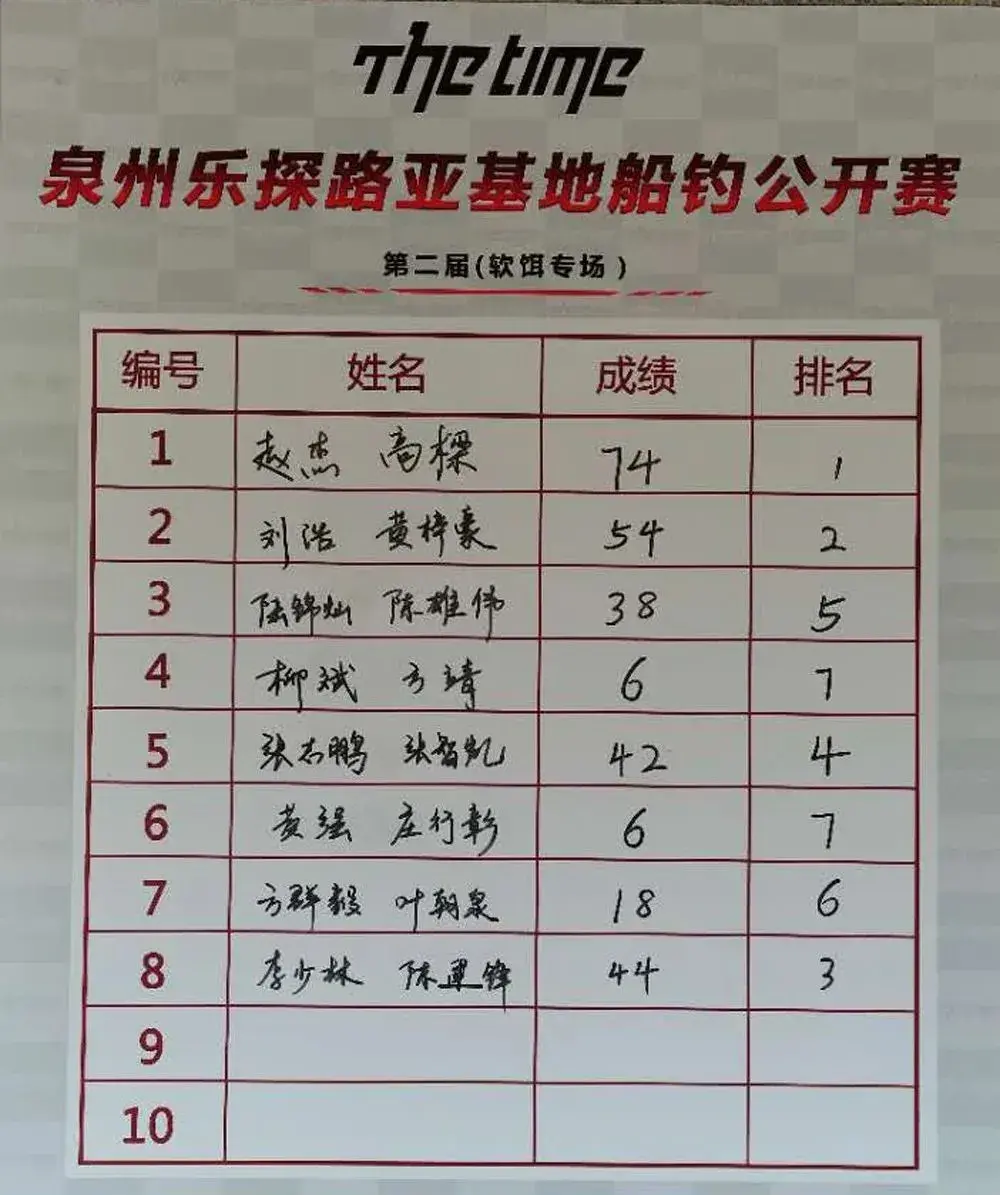 The time
泉州乐探路亚基地船钓公开赛
第二届(软饵专场)
编号 姓名 成绩 排名
1 赵杰 高樑 74 1
2 刘浩 黄梓豪 54 2
3 陆锦灿 陈雄伟 38 5
4 柳斌 方靖 6 7
5 张志鹏 张智凯 42 4
6 黄强 庄行彰 6 7
7 方群毅 叶朝泉 18 6
8 李少林 陈 锋 44 3
9
10